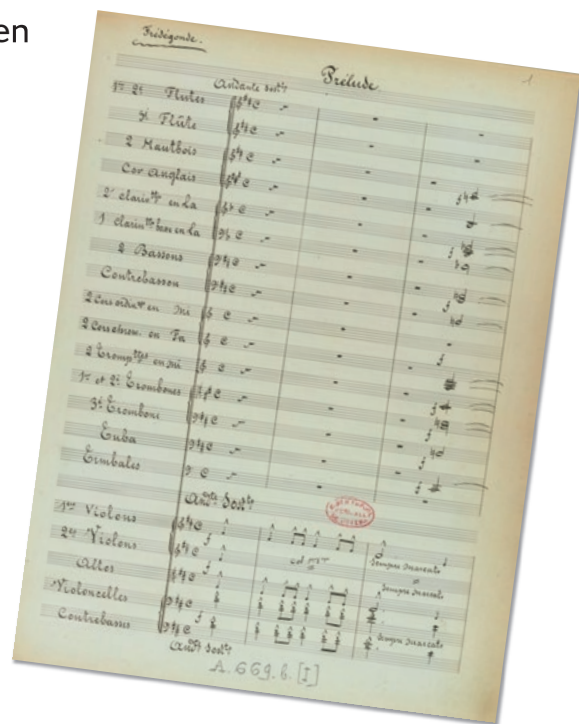 en
Frédégonde.
Prélude.
1
Andante sost.
1re 2e Flûtes
3e Flûte
2 Hautbois
Cor Anglais
2 clarin.ttes en La
1 clarin.tte basse en La
2 Bassons
Contrebasson
2 Cors ordin. en mi
2 Cors chrom. en Fa
2 Tromp.ttes en mi
1er et 2e Trombones
3e Trombone
Tuba
Timbales
And.te sost.
1ers Violons
2ds Violons
Altos
Violoncelles
Contrebasses
Sempre marcato
Sempre marcato
Sempre marcato
And.te sost.
A.669.b.[I]